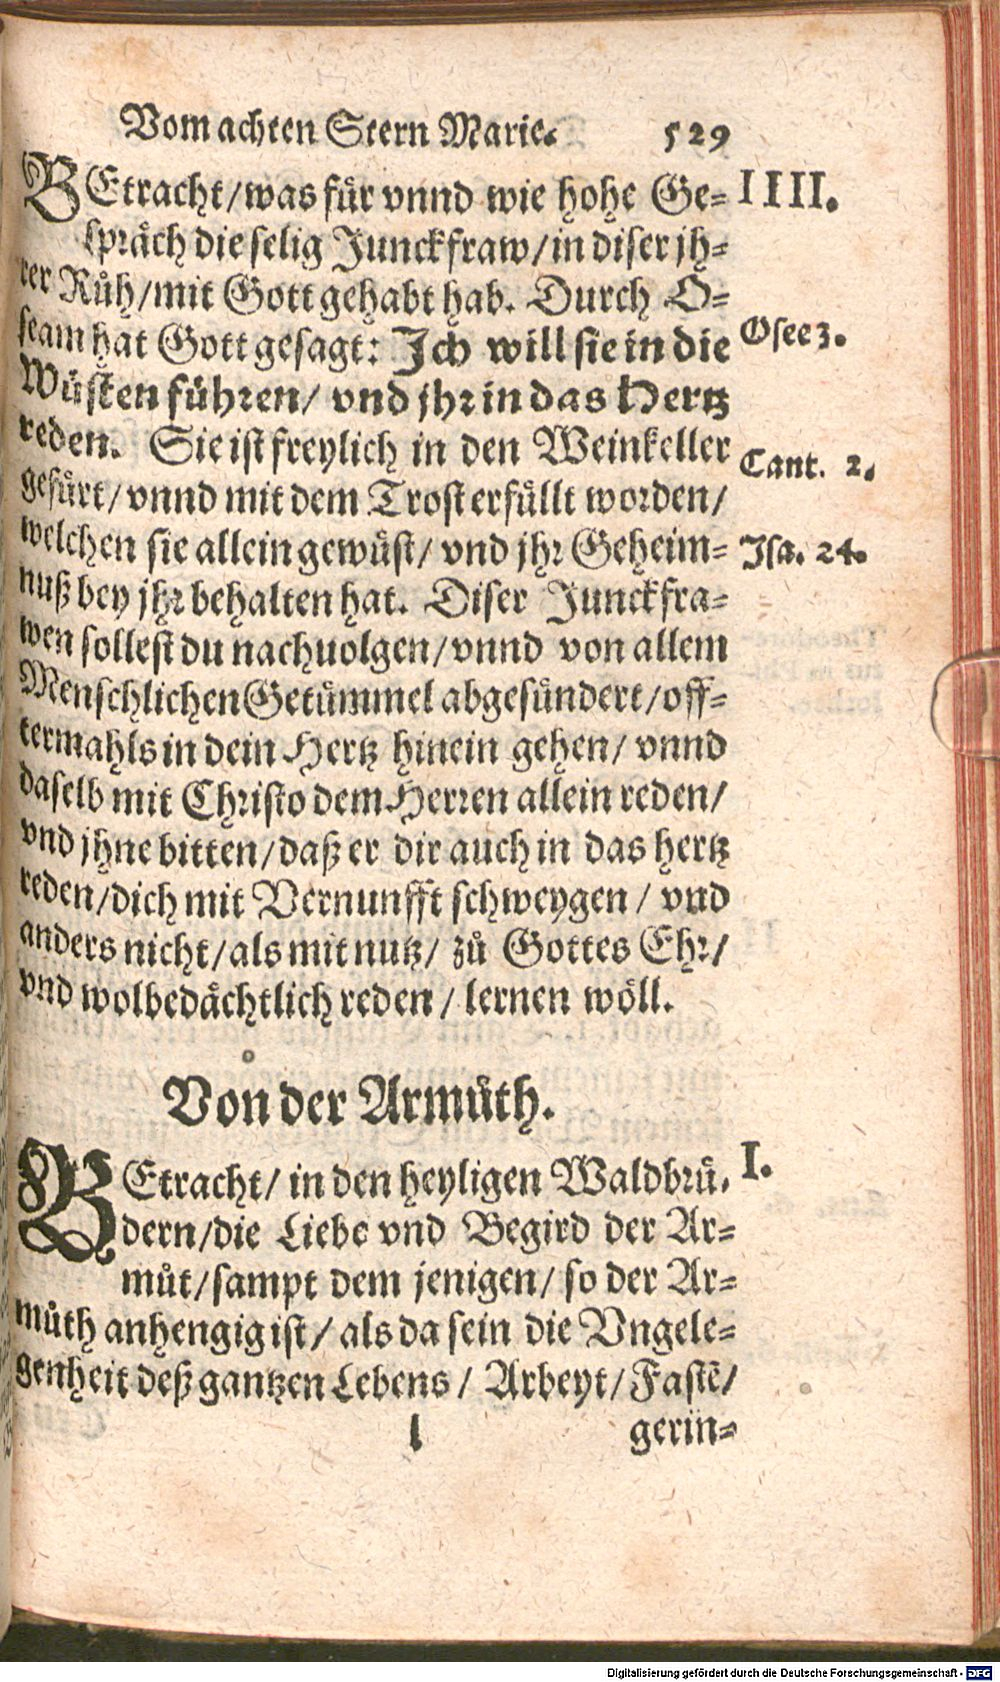 Vom achten Stern Marie. 529
BEtracht/was für vnnd wie hohe Ge- IIII.
spräch die selig Junckfraw/in diser jh-
rer Růh/mit Gott gehabt hab. Durch O-
seam hat Gott gesagt: Ich will sie in die Osee 3.
Wüsten führen/ vnd jhr in das Hertz
reden. Sie ist freylich in den Weinkeller Cant. 2.
gefürt/vnnd mit dem Trost erfüllt worden/
welchen sie allein gewüst/ vnd jhr Geheim- Isa. 24.
nuß bey jhr behalten hat. Diser Junckfra-
wen sollest du nachuolgen/vnnd von allem
Menschlichen Getümmel abgesündert/off-
termahls in dein Hertz hinein gehen/ vnnd
daselb mit Christo dem Herren allein reden/
vnd jhne bitten/daß er dir auch in das hertz
reden/dich mit Vernunfft schweygen / vnd
anders nicht/als mit nutz/ zů Gottes Ehr/
vnd wolbedächtlich reden / lernen wöll.
Von der Armůth.
BEtracht/ in den heyligen Waldbrů- I.
dern/die Liebe vnd Begird der Ar-
můt/sampt dem jenigen/ so der Ar-
můth anhengig ist/ als da sein die Vngele-
genheit deß gantzen Lebens/ Arbeyt/Fastē/
l gerin-
Digitalisierung gefördert durch die Deutsche Forschungsgemeinschaft - DFG